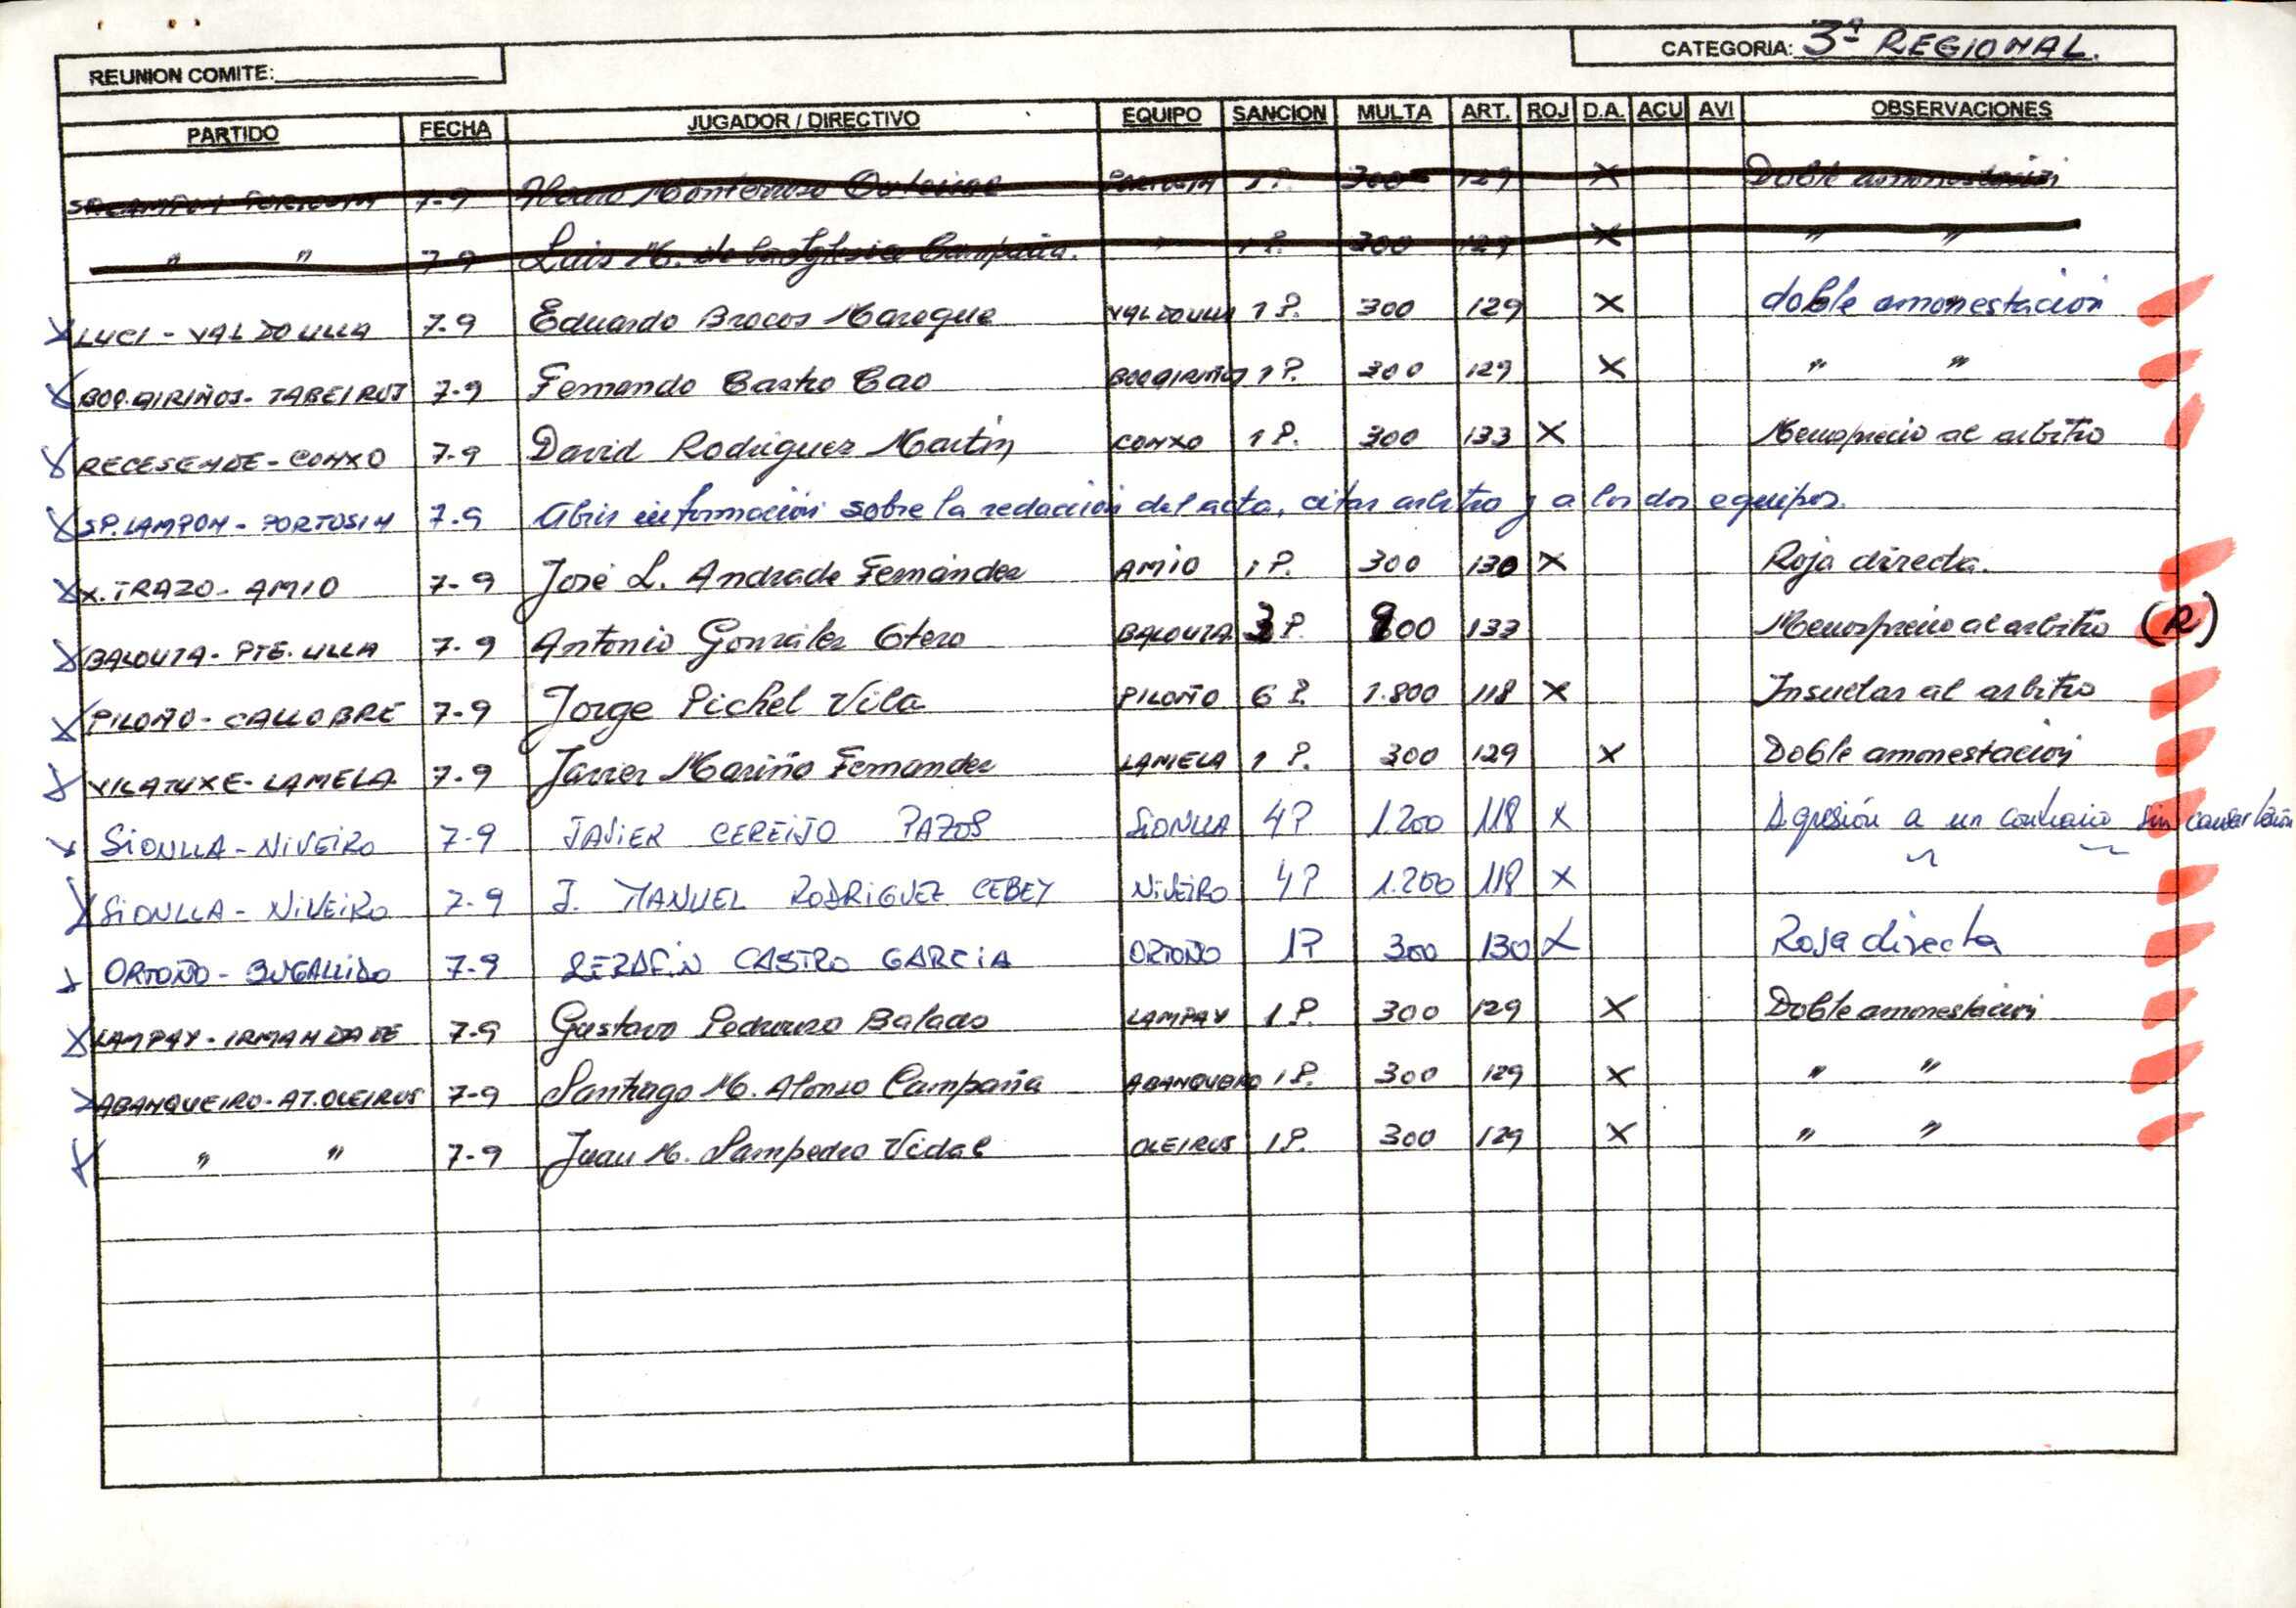 REUNION COMITE:
CATEGORIA: 3ª REGIONAL.
PARTIDO FECHA JUGADOR / DIRECTIVO EQUIPO SANCION MULTA ART. ROJ D.A. ACU AVI OBSERVACIONES
SP. LAMPON PORTOSIN 7-9 Monterroso Outeiral PORTOSIN 1 P. 300 129 X Doble amonestación
" " 7-9 Luis M. de la Iglesia Campaña. " 1 P. 300 129 X " "
X LUCI - VALDOULLA 7-9 Eduardo Brocos Maroque VALDOULLA 1 P. 300 129 X doble amonestación
X BOQ.AIRIÑOS - TABEIROS 7-9 Fernando Castro Cao BOQAIRIÑOS 1 P. 300 129 X " "
X RECESENDE - CONXO 7-9 David Rodriguez Martin CONXO 1 P. 300 133 X Menosprecio al arbitro
X SP. LAMPON - PORTOSIN 7-9 Abrir información sobre la redacción del acta, citar arbitro y a los dos equipos.
X X. TRAZO - AMIO 7-9 José L. Andrade Fernández AMIO 1 P. 300 130 X Roja directa.
X BALOUTA - PTE. ULLA 7-9 Antonio González Otero BALOUTA 3 P. 900 133 Menosprecio al arbitro (R)
X PILOÑO - CALLOBRE 7-9 Jorge Pichel Vila PILOÑO 6 P. 1.800 118 X Insultar al arbitro
X VILATUXE - LAMELA 7-9 Javier Mariño Fernandez LAMELA 1 P. 300 129 X Doble amonestación
X SIONLLA - NIVEIRO 7-9 JAVIER CEREIJO PAZOS SIONLLA 4P 1.200 118 X Agresión a un contrario sin causar lesión
X SIONLLA - NIVEIRO 7-9 J. MANUEL RODRIGUEZ CEBEY NIVEIRO 4P 1.200 118 X " "
X ORTOÑO - BUGALLIDO 7-9 SERAFIN CASTRO GARCIA ORTOÑO 1P 300 130 X Roja directa
X LAMPAY - IRMANDADE 7-9 Gustavo Pedrouzo Balado LAMPAY 1 P. 300 129 X Doble amonestación
X ABANQUEIRO - AT. OLEIROS 7-9 Santiago M. Alonso Campaña ABANQUEIRO 1 P. 300 129 X " "
X " " 7-9 Juan M. Sampedro Vidal OLEIROS 1 P. 300 129 X " "